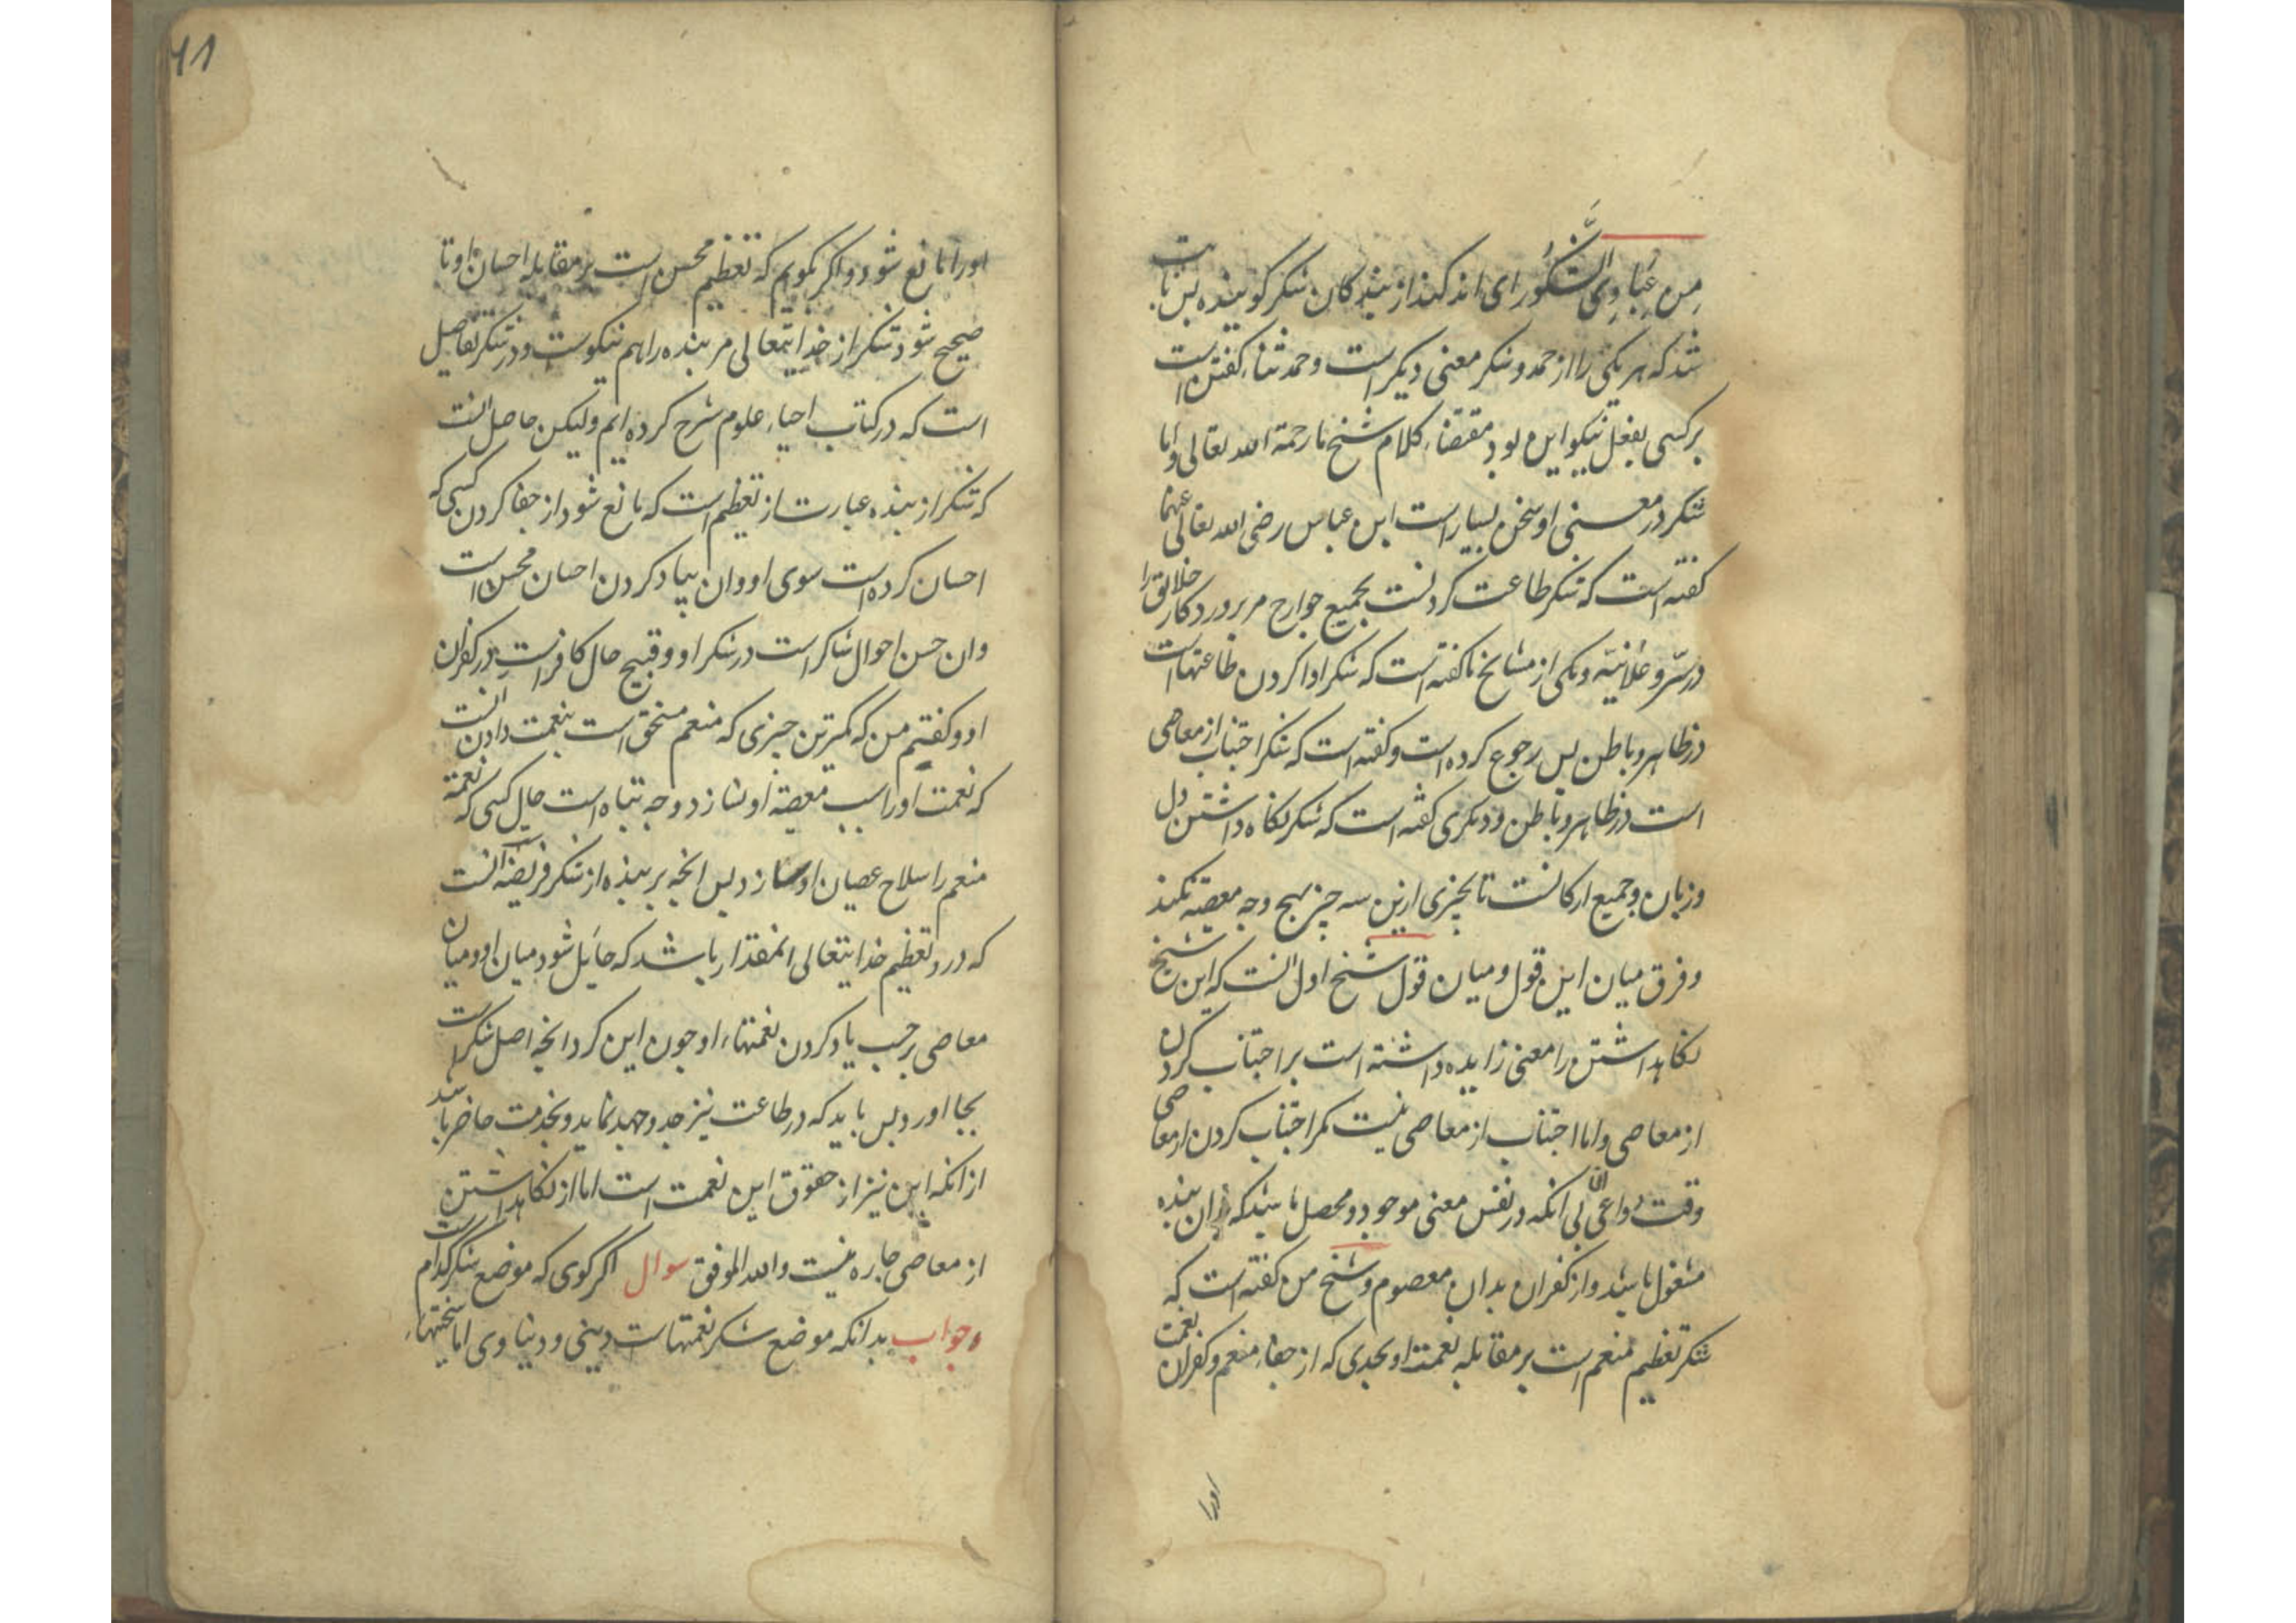 مِن عِبَادِیَ الشَّکُورُ ای اندکند از بندکان شکر کوینده پس ثابت
شد که هر یکی را از حمد و شکر معنی دیکر است و حمد ثناء کفتن است
بر کسی بفعل نیکو این بود مقتضاء کلام شیخ ما رحمة الله تعالی و اما
شکر در معنی او سخن بسیار است ابن عباس رضی الله تعالی عنهما
کفته است که شکر طاعت کردنست بجمیع جوارح مر پروردکار خلایق را
در سرّ و علانیّه و یکی از مشایخ ما کفته است که شکر ادا کردن طاعتهاست
در ظاهر و باطن پس رجوع کرده است و کفته است که شکر اجتناب از معاصی
است در ظاهر و باطن و دیکری کفته است که شکر نکاه داشتن دل
و زبان و جمیع ارکانست تا بچیزی ازین سه چیز بهیچ وجه معصیة نکند
و فرق میان این قول و میان قول شیخ اول آنست که این شیخ
نکاهداشتن را معنی زایده داشته است بر اجتناب کردن
از معاصی و اما اجتناب از معاصی نیست مکر اجتناب کردن از معاصی
وقت دواعی آن بی آنکه در نفس معنی موجود و محصل باشد که بدان بنده
مشغول باشد و از کفران بدان معصوم و شیخ من کفته است که
شکر تعظیم منعم است بر مقابله نعمت او بحدی که از جفاء منعم و کفران نعمت
اورا
41
اورا مانع شود و اکر بکویم که تعظیم محسن است بر مقابله احسان او تا
صحیح شود شکر از خدایتعالی مر بنده را هم نیکوست و در شکر تفاصیل
است که در کتاب احیاء علوم شرح کرده ایم ولیکن حاصل آنست
که شکر از بنده عبارت از تعظیم است که مانع شود از جفا کردن کسی که
احسان کرده است سوی او و ان بیاد کردن احسان محسن است
و ان حسن احوال شاکر است در شکر او و قبیح حال کافر است در کفران
او و کفتیم من که کمترین چیزی که منعم مستحق است بنعمت دادن آنست
که نعمت او را سبب معصیة او نسازد و چه تباه است حال کسی که نعمة
منعم را سلاح عصیان او سازد پس انچه بر بنده از شکر فریضه است آنست
که در و تعظیم خدایتعالی انمقدار باشد که حایل شود میان او و میان
معاصی بر حسب یاد کردن نعمتهاء او چون این کرد انچه اصل شکر است
بجا اورد پس باید که در طاعت نیز جد و جهد نماید و بخدمت حاضر باشد
از انکه این نیز از حقوق این نعمت است اما از نکاهداشتن
از معاصی چاره نیست والله الموفق سوال اکر کوی که موضع شکر کدام است
و جواب بدانکه موضع شکر نعمتهاست دینی و دنیاوی اما سختیهاء